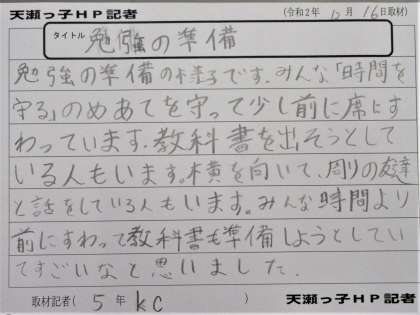 天瀬っ子HP記者
(令和2年 12月 16日取材)
タイトル 勉強の準備
勉強の準備の様子です。みんな「時間を
守る」のめあてを守って少し前に席にす
わっています。教科書を出そうとして
いる人もいます。横を向いて、周りの友達
と話をしている人もいます。みんな時間より
前にすわって教科書も準備しようとしてい
てすごいなと思いました。
取材記者( 5年 KC )
天瀬っ子HP記者